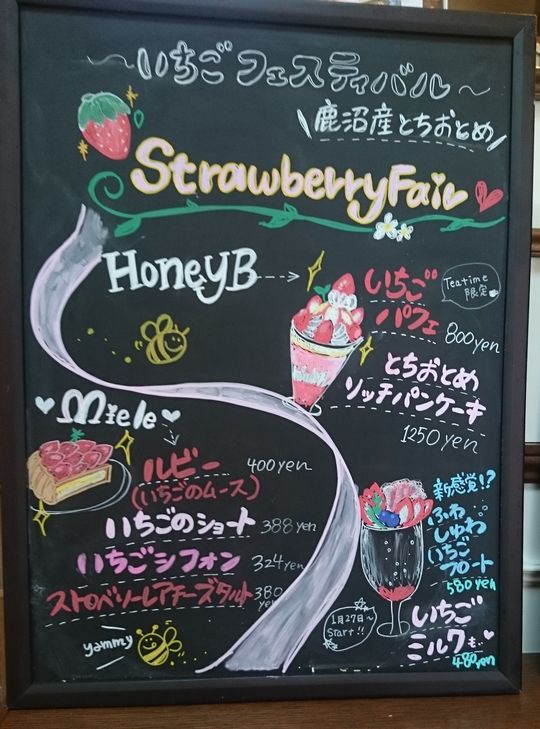 ～いちごフェスティバル～
\鹿沼産とちおとめ/
StrawberryFair
HoneyB
いちご
パフェ
Teatime
限定
800yen
とちおとめ
リッチパンケーキ
1250yen
Miele
ルビー
400yen
(いちごのムース)
いちごのショート 388yen
いちごシフォン 324yen
ストロベリーレアチーズタルト 380yen
yammy
新感覚!?
ふわ
しゅわ
いちご
フロート
580yen
1月27日～
Start!!
いちご
ミルクも、
480yen